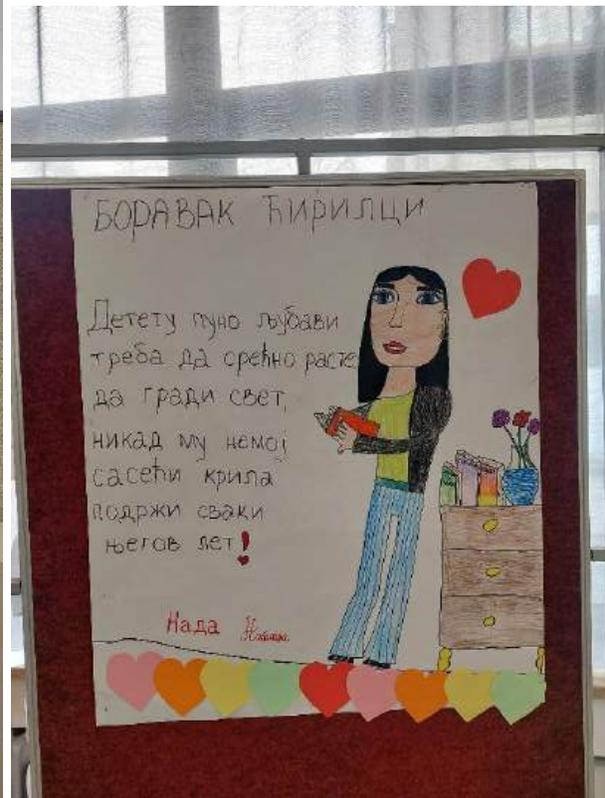 БОРАВАК ЋИРИЛЦИ
Детету пуно љубави
треба да срећно расте
да гради свет,
никад му немој
сасећи крила
подржи сваки
његов лет!
Нада